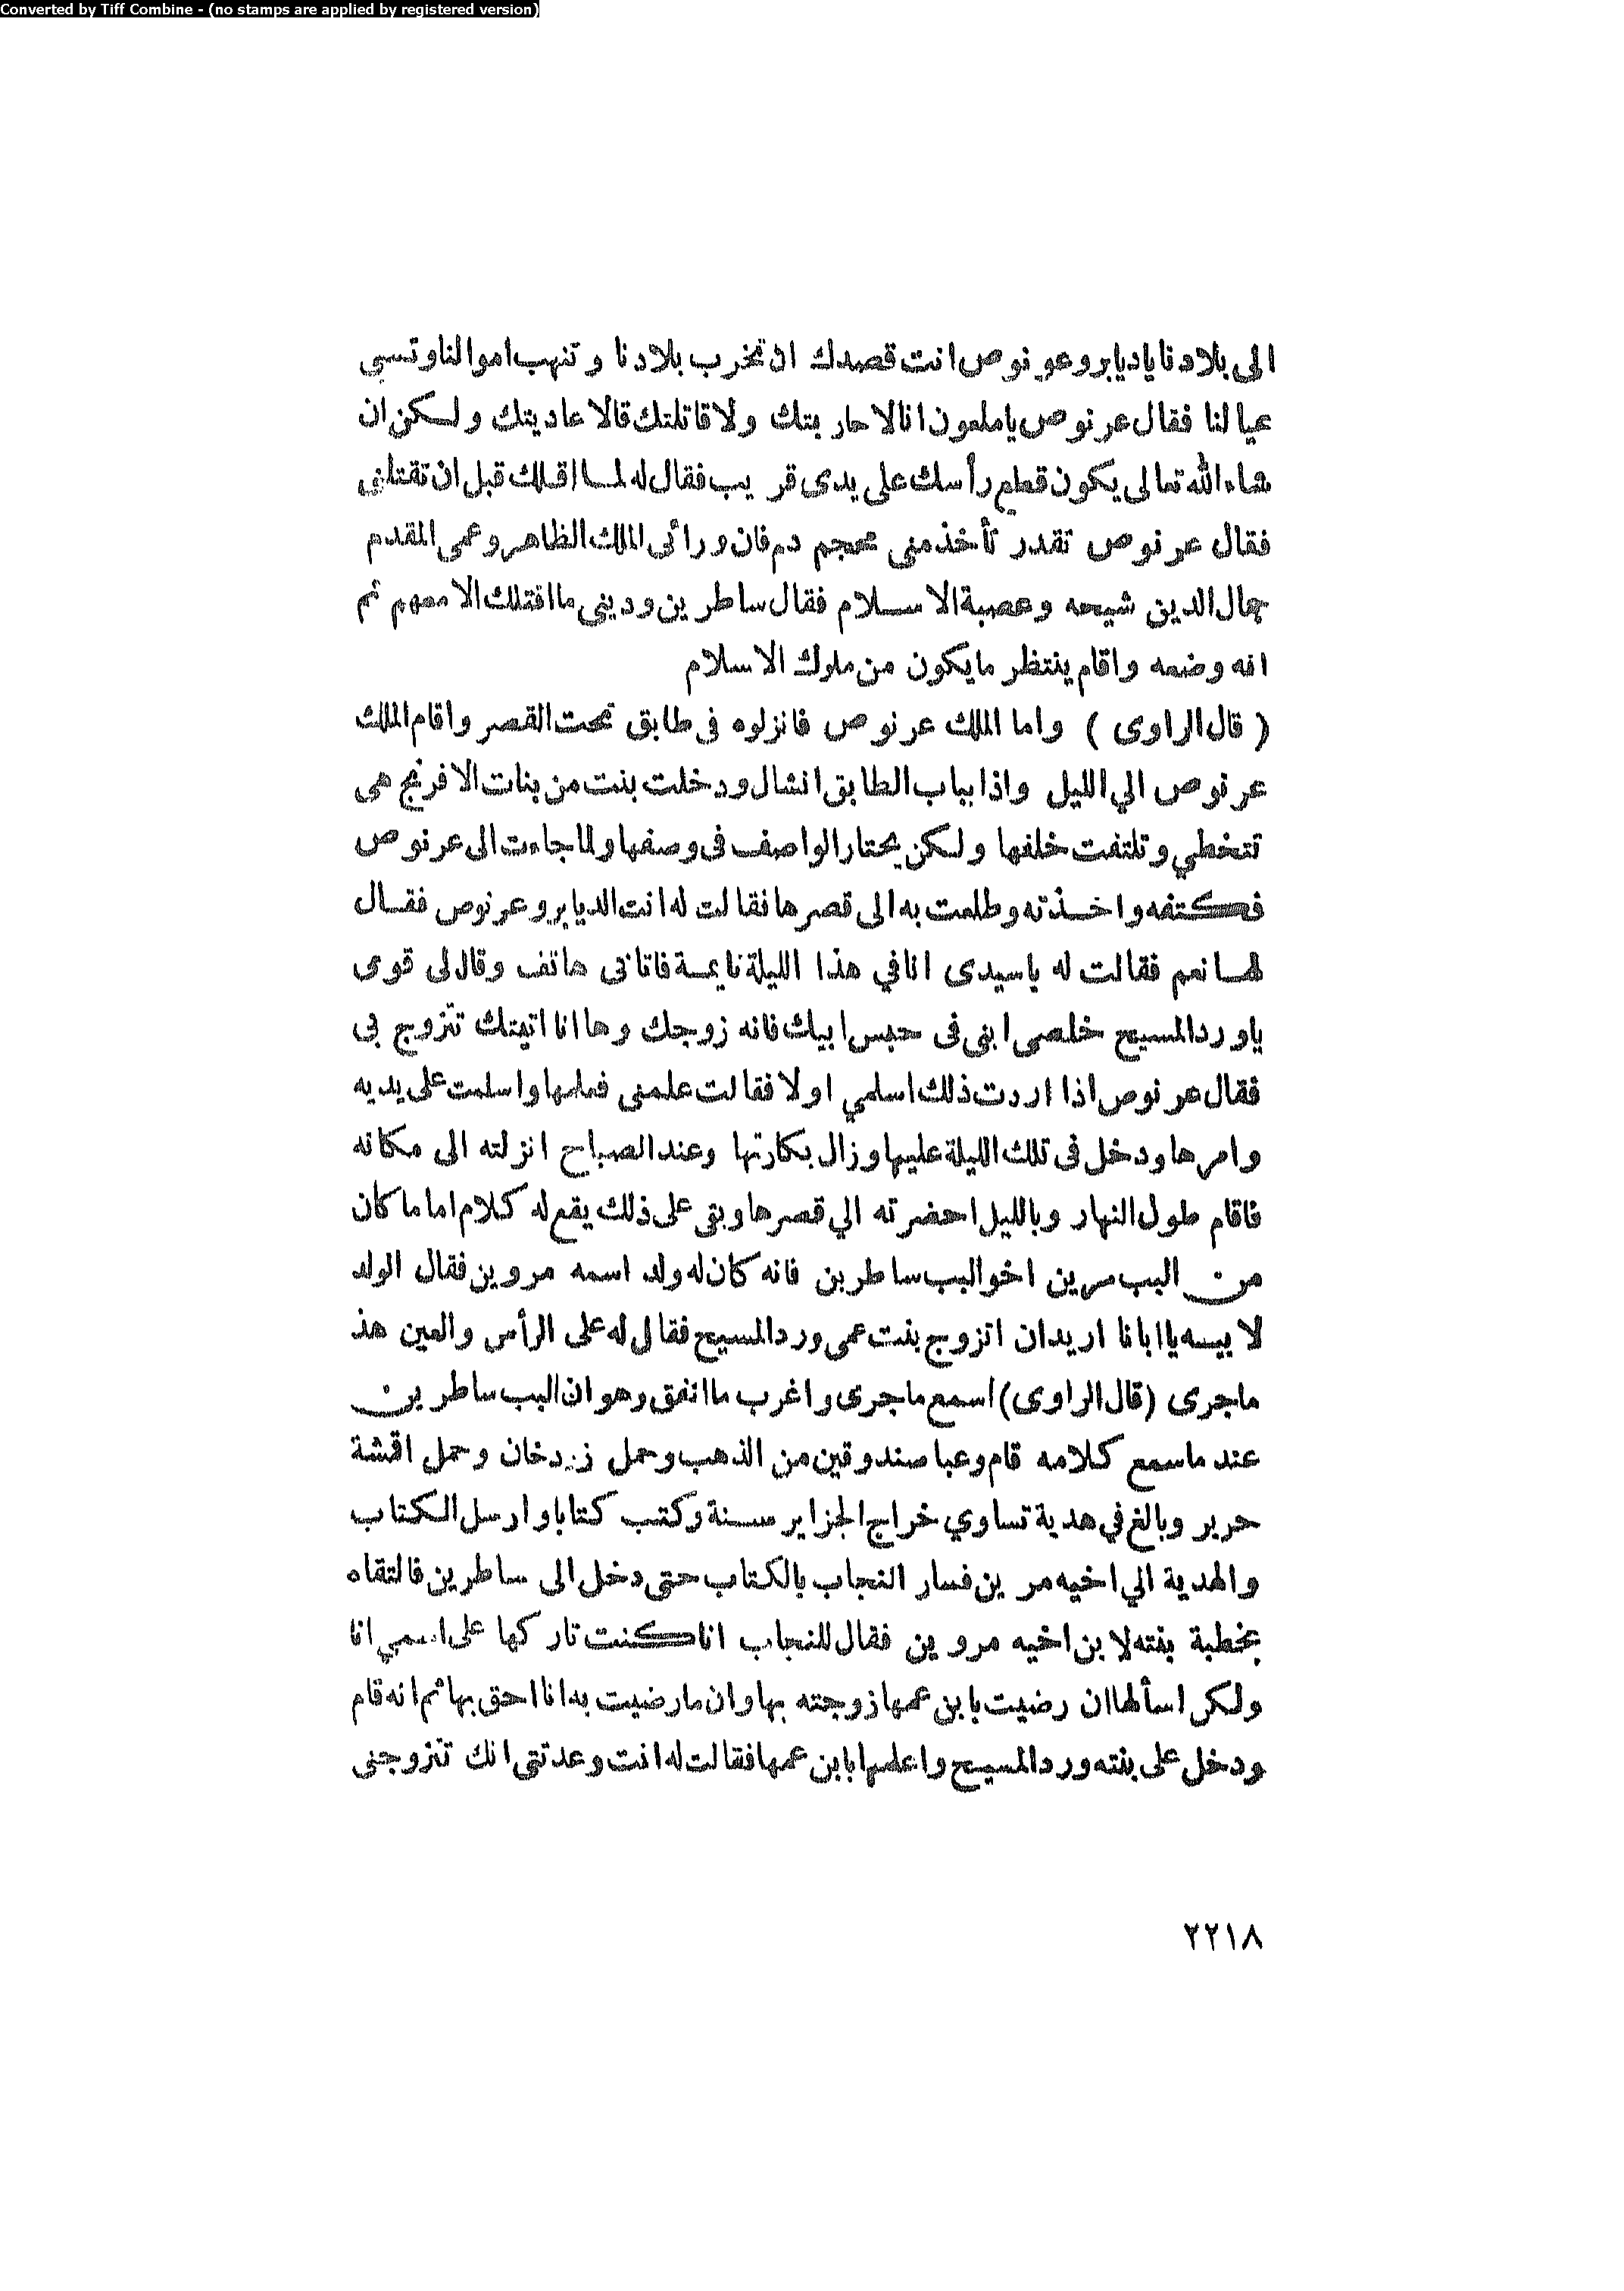 Converted by Tiff Combine - (no stamps are applied by registered version)
الى بلادنا ياديابرو عرنوص انت قصدك ان تخرب بلادنا وتنهب اموالنا وتسبي
عيالنا فقال عرنوص ياملعون انا لا حاربتك ولا قاتلتك قالا عاديتك ولكن ان
شاء الله تعالى يكون قطع رأسك على يدى قريب فقال له لما اقلك قبل ان تقتلنى
فقال عرنوص تقدر تأخذ منى محجم دم فان ورائى الملك الظاهر وعمى المقدم
جمال الدين شيحه وعصبة الاسلام فقال ساطرين ودينى ما اقتلك الا معهم ثم
انه وضعه واقام ينتظر مايكون من ملوك الاسلام
( قال الراوى ) واما الملك عرنوص فانزلوه فى طابق تحت القصر واقام الملك
عرنوص الي الليل واذا بباب الطابق انشال ودخلت بنت من بنات الافرنج هى
تتخطي وتلتفت خلفها ولكن يحتار الواصف فى وصفها ولما جاءت الى عرنوص
فكتفه واخذته وطلعت به الى قصرها فقالت له انت الديابرو عرنوص فقال
لها نعم فقالت له ياسيدى انا في هذا الليلة نايمة فاتانى هاتف وقال لى قومى
ياورد المسيح خلصى ابنى فى حبس ابيك فانه زوجك وها انا اتيتك تتزوج بى
فقال عرنوص اذا اردت ذلك اسلمي اولا فقالت علمنى فعلمها واسلمت على يديه
وامرها ودخل فى تلك الليلة عليها وزال بكارتها وعند الصباح انزلته الى مكانه
فاقام طول النهار وبالليل احضرته الي قصرها وبقى على ذلك يقع له كلام اما ما كان
من البب مرين اخو البب ساطرين فانه كان له ولد اسمه مروين فقال الولد
لابيه يا ابانا اريد ان اتزوج بنت عمى ورد المسيح فقال له على الرأس والعين هذ
ماجرى (قال الراوى) اسمع ماجرى واغرب ما اتفق وهو ان البب ساطرين
عند ما سمع كلامه قام وعبا صندوقين من الذهب وحمل زردخان وحمل اقمشة
حرير وبالغ في هدية تساوي خراج الجزاير سنة وكتب كتابا وارسل الكتاب
والهدية الي اخيه مرين فسار النجاب بالكتاب حتى دخل الى ساطرين فالتقاه
بخطبة بنته لابن اخيه مروين فقال للنجاب انا كنت تاركها على اسمي انا
ولكن اسألها ان رضيت بابن عمها زوجته بها وان مارضيت به انا احق بها ثم انه قام
ودخل على بنته ورد المسيح واعلمها بابن عمها فقالت له انت وعدتنى انك تتزوجنى
٢٢١٨